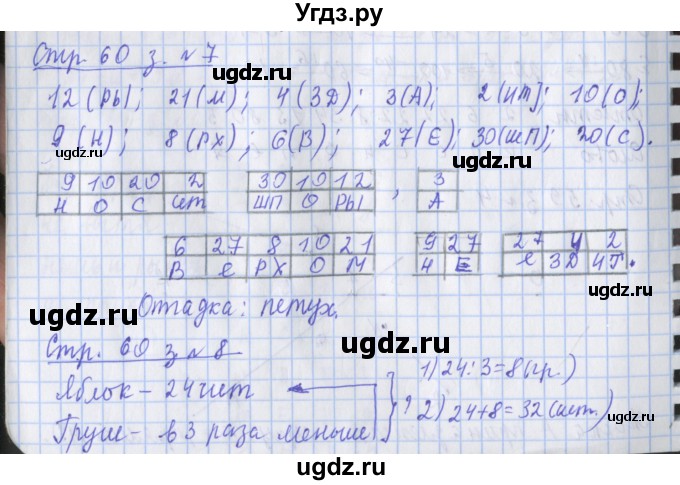 Угдз.ру
Стр. 60 з. №7
ugdz.ru
ugdz.ru
12 (РЫ); 21(М); 4(ЗД); 3(А); 2(ИТ); 10(О);
9(Н); 8(РХ); 6(В); 27(Е); 30(ШП); 20(С).
ugdz.ru
ugdz.ru
9 10 20 2
Н О С ит
30 10 12
ШП О РЫ
,
3
А
6 27 8 10 21
В Е РХ О М
9 27
Н Е
27 4 2
Е ЗД ИТ.
ugdz.ru
ugdz.ru
Отгадка: петух.
Стр. 60 з №8
Яблок - 24 шт
Груш - в 3 раза меньше
} ?
1) 24:3=8(гр.)
2) 24+8=32(шт.)
ugdz.ru
ugdz.ru
ugdz.ru